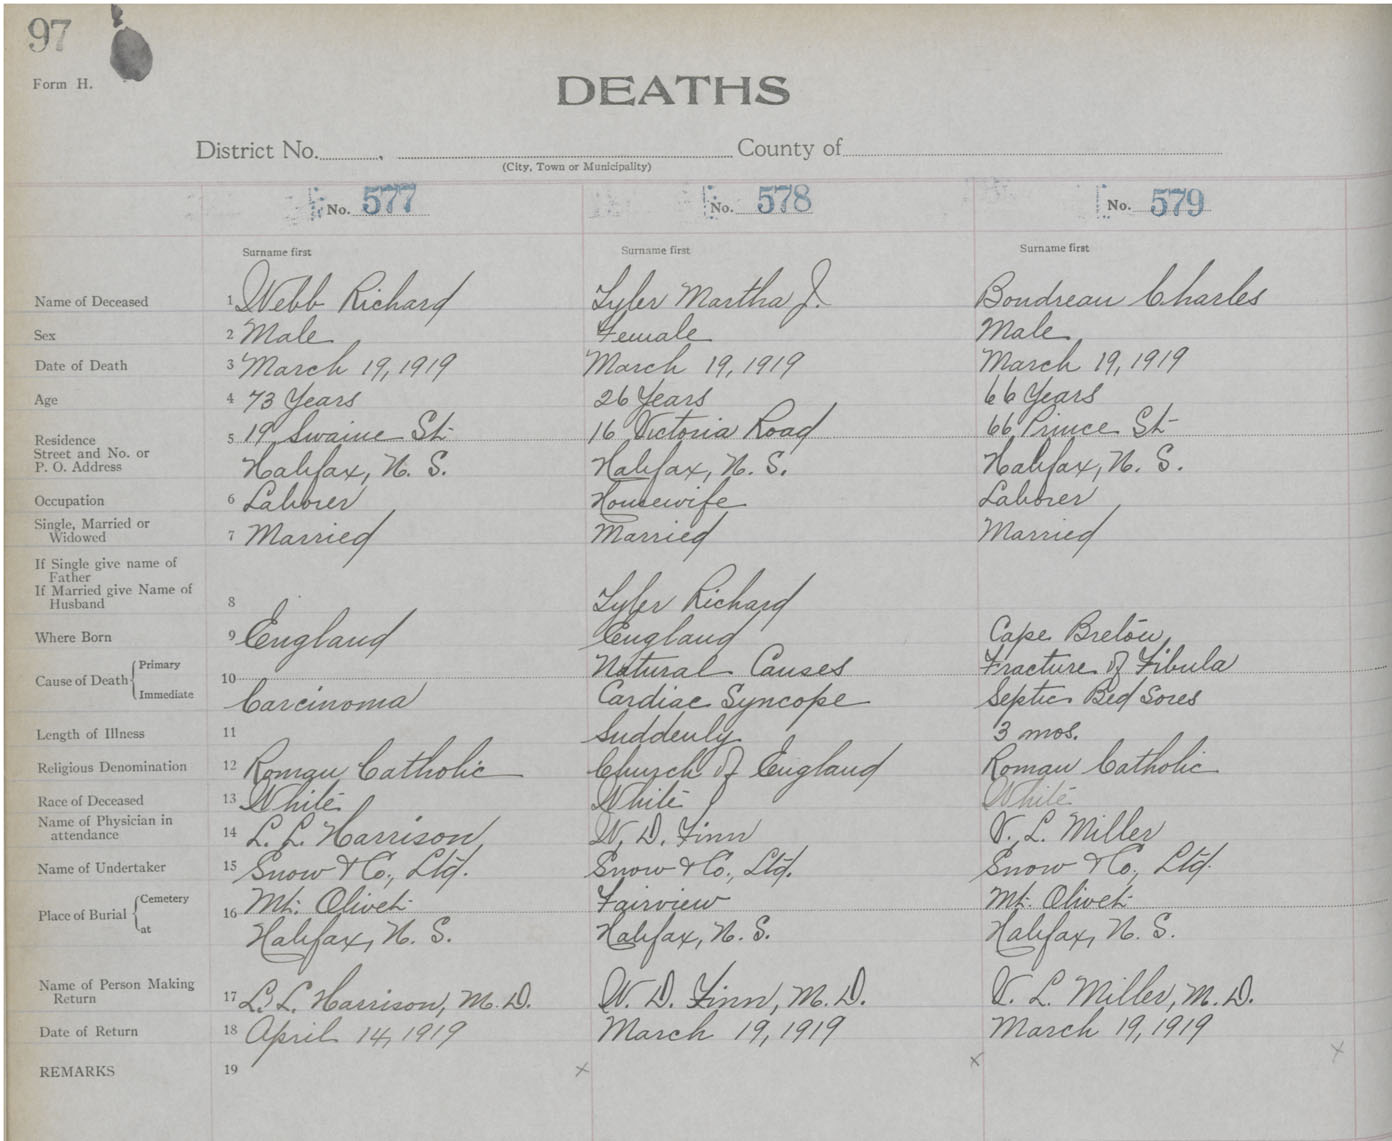 97
Form H.
DEATHS
District No. , County of
(City, Town or Municipality)
No. 577 No. 578 No. 579
Surname first Surname first Surname first
Name of Deceased 1 Webb Richard Tyler Martha J. Boudreau Charles
Sex 2 Male Female Male
Date of Death 3 March 19, 1919 March 19, 1919 March 19, 1919
Age 4 73 Years 26 Years 66 Years
Residence 5 19 Swaine St. 16 Victoria Road 66 Prince St.
Street and No. or
P. O. Address Halifax, N. S. Halifax, N. S. Halifax, N. S.
Occupation 6 Laborer Housewife Laborer
Single, Married or
Widowed 7 Married Married Married
If Single give name of
Father
If Married give Name of
Husband 8 Tyler Richard
Where Born 9 England England Cape Breton
Cause of Death Primary 10 Natural Causes Fracture of Fibula
Immediate Carcinoma Cardiac Syncope Septic Bed Sores
Length of Illness 11 Suddenly 3 mos.
Religious Denomination 12 Roman Catholic Church of England Roman Catholic
Race of Deceased 13 White White White
Name of Physician in
attendance 14 L. L. Harrison W. D. Finn V. L. Miller
Name of Undertaker 15 Snow & Co., Ltd. Snow & Co., Ltd. Snow & Co., Ltd.
Place of Burial Cemetery 16 Mt. Olivet Fairview Mt. Olivet
at Halifax, N. S. Halifax, N. S. Halifax, N. S.
Name of Person Making
Return 17 L. L. Harrison, M. D. W. D. Finn, M. D. V. L. Miller, M. D.
Date of Return 18 April 14, 1919 March 19, 1919 March 19, 1919
REMARKS 19 x x x